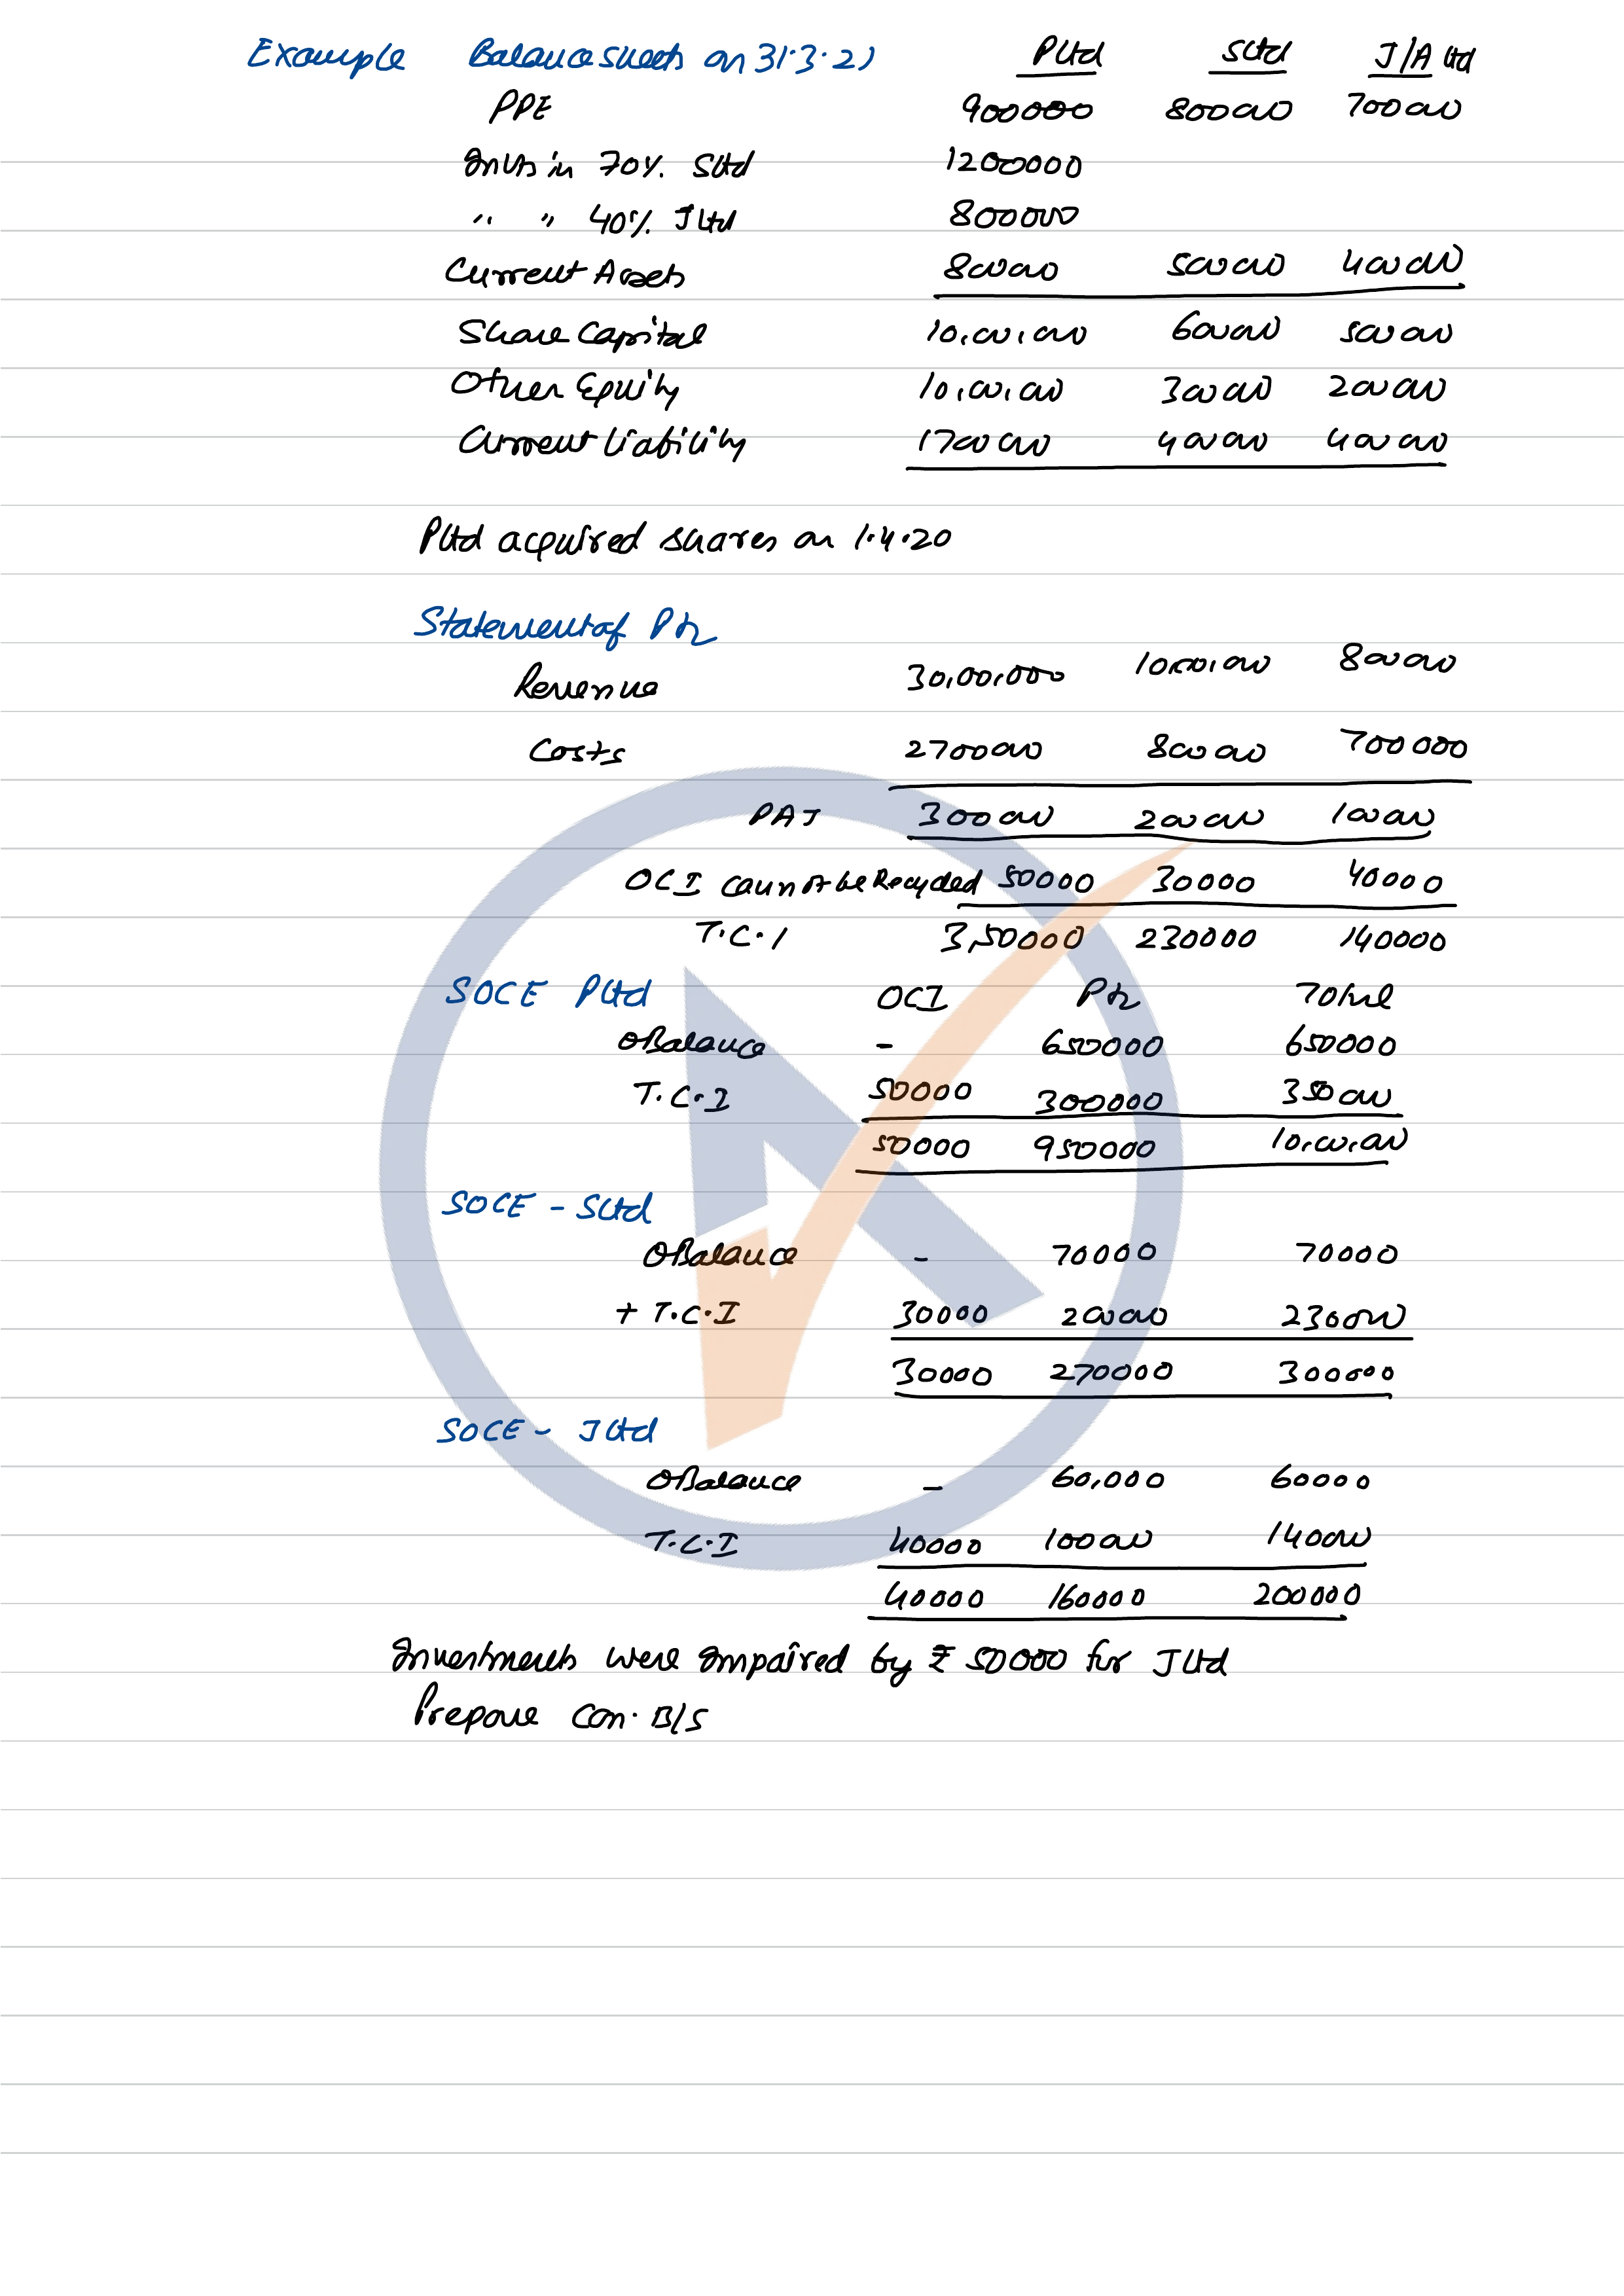 Example Balance sheets on 31.3.21 P Ltd S Ltd J/A Ltd
PPE 900000 800000 700000
Invts in 70% S Ltd 1200000
" " 40% J Ltd 800000
Current Assets 800000 500000 400000
Share Capital 10,00,000 600000 500000
Other Equity 10,00,000 300000 200000
Current Liability 1700000 400000 400000
P Ltd acquired shares on 1.4.20
Statement of P/L
Revenue 30,00,000 10,00,000 800000
Costs 2700000 800000 700000
PAT 300000 200000 100000
OCI cannot be Recycled 50000 30000 40000
T.C.I 3,50000 230000 140000
SOCE P Ltd OCI P/L Total
OBalance - 650000 650000
T.C.I 50000 300000 350000
50000 950000 10,00,000
SOCE - S Ltd
OBalance - 70000 70000
+ T.C.I 30000 200000 230000
30000 270000 300000
SOCE - J Ltd
OBalance - 60,000 60000
T.C.I 40000 100000 140000
40000 160000 200000
Investments were Impaired by ₹ 50000 for J Ltd
Prepare Con. B/S